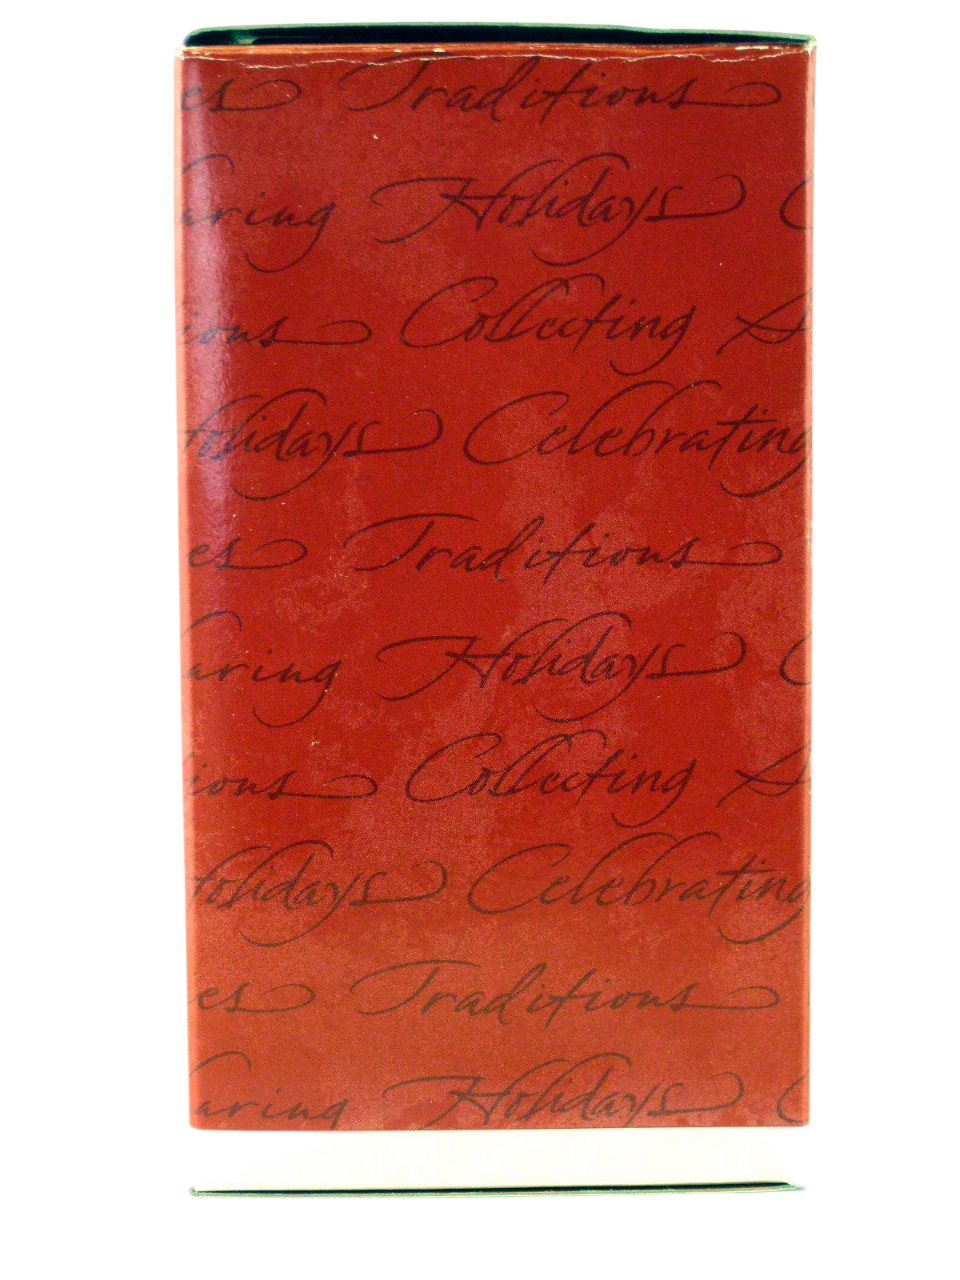 es Traditions
aring Holidays C
ions Collecting S
olidays Celebrating
es Traditions
aring Holidays C
ions Collecting S
olidays Celebrating
es Traditions
aring Holidays C